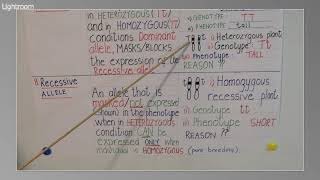 Lightroom
in HETEROZYGOUS (Tt)
and in HOMOZYGOUS (TT)
conditions. Dominant
allele, MASKS/BLOCKS
the expression
Recessive allele
8. Recessive
ALLELE
An allele that is
masked/not expressed
shown in the phenotype
when in HETEROZYGOUS
condition CAN be
expressed ONLY when
HOMOZYGOUS (pure breeding)
i) GENOTYPE - TT
PHENOTYPE tall
i) Heterozygous plant
ii) Genotype Tt
iii) Phenotype - TALL
REASON ??
i) Homozygous
recessive plant
ii) Genotype tt
iii) Phenotype SHORT
REASON ??